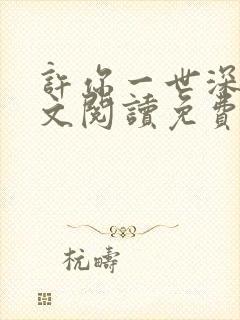 許你一世深
文閱讀免費
杭疇